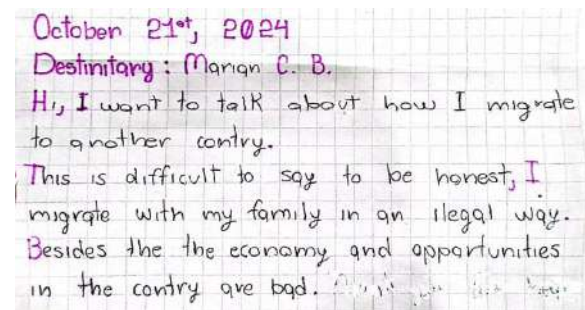 October 21st, 2024
Destinitary: Marian C. B.
Hi, I want to talk about how I migrate
to another contry.
This is difficult to say to be honest, I
migrate with my family in an ilegal way.
Besides the the economy and opportunities
in the contry are bad.